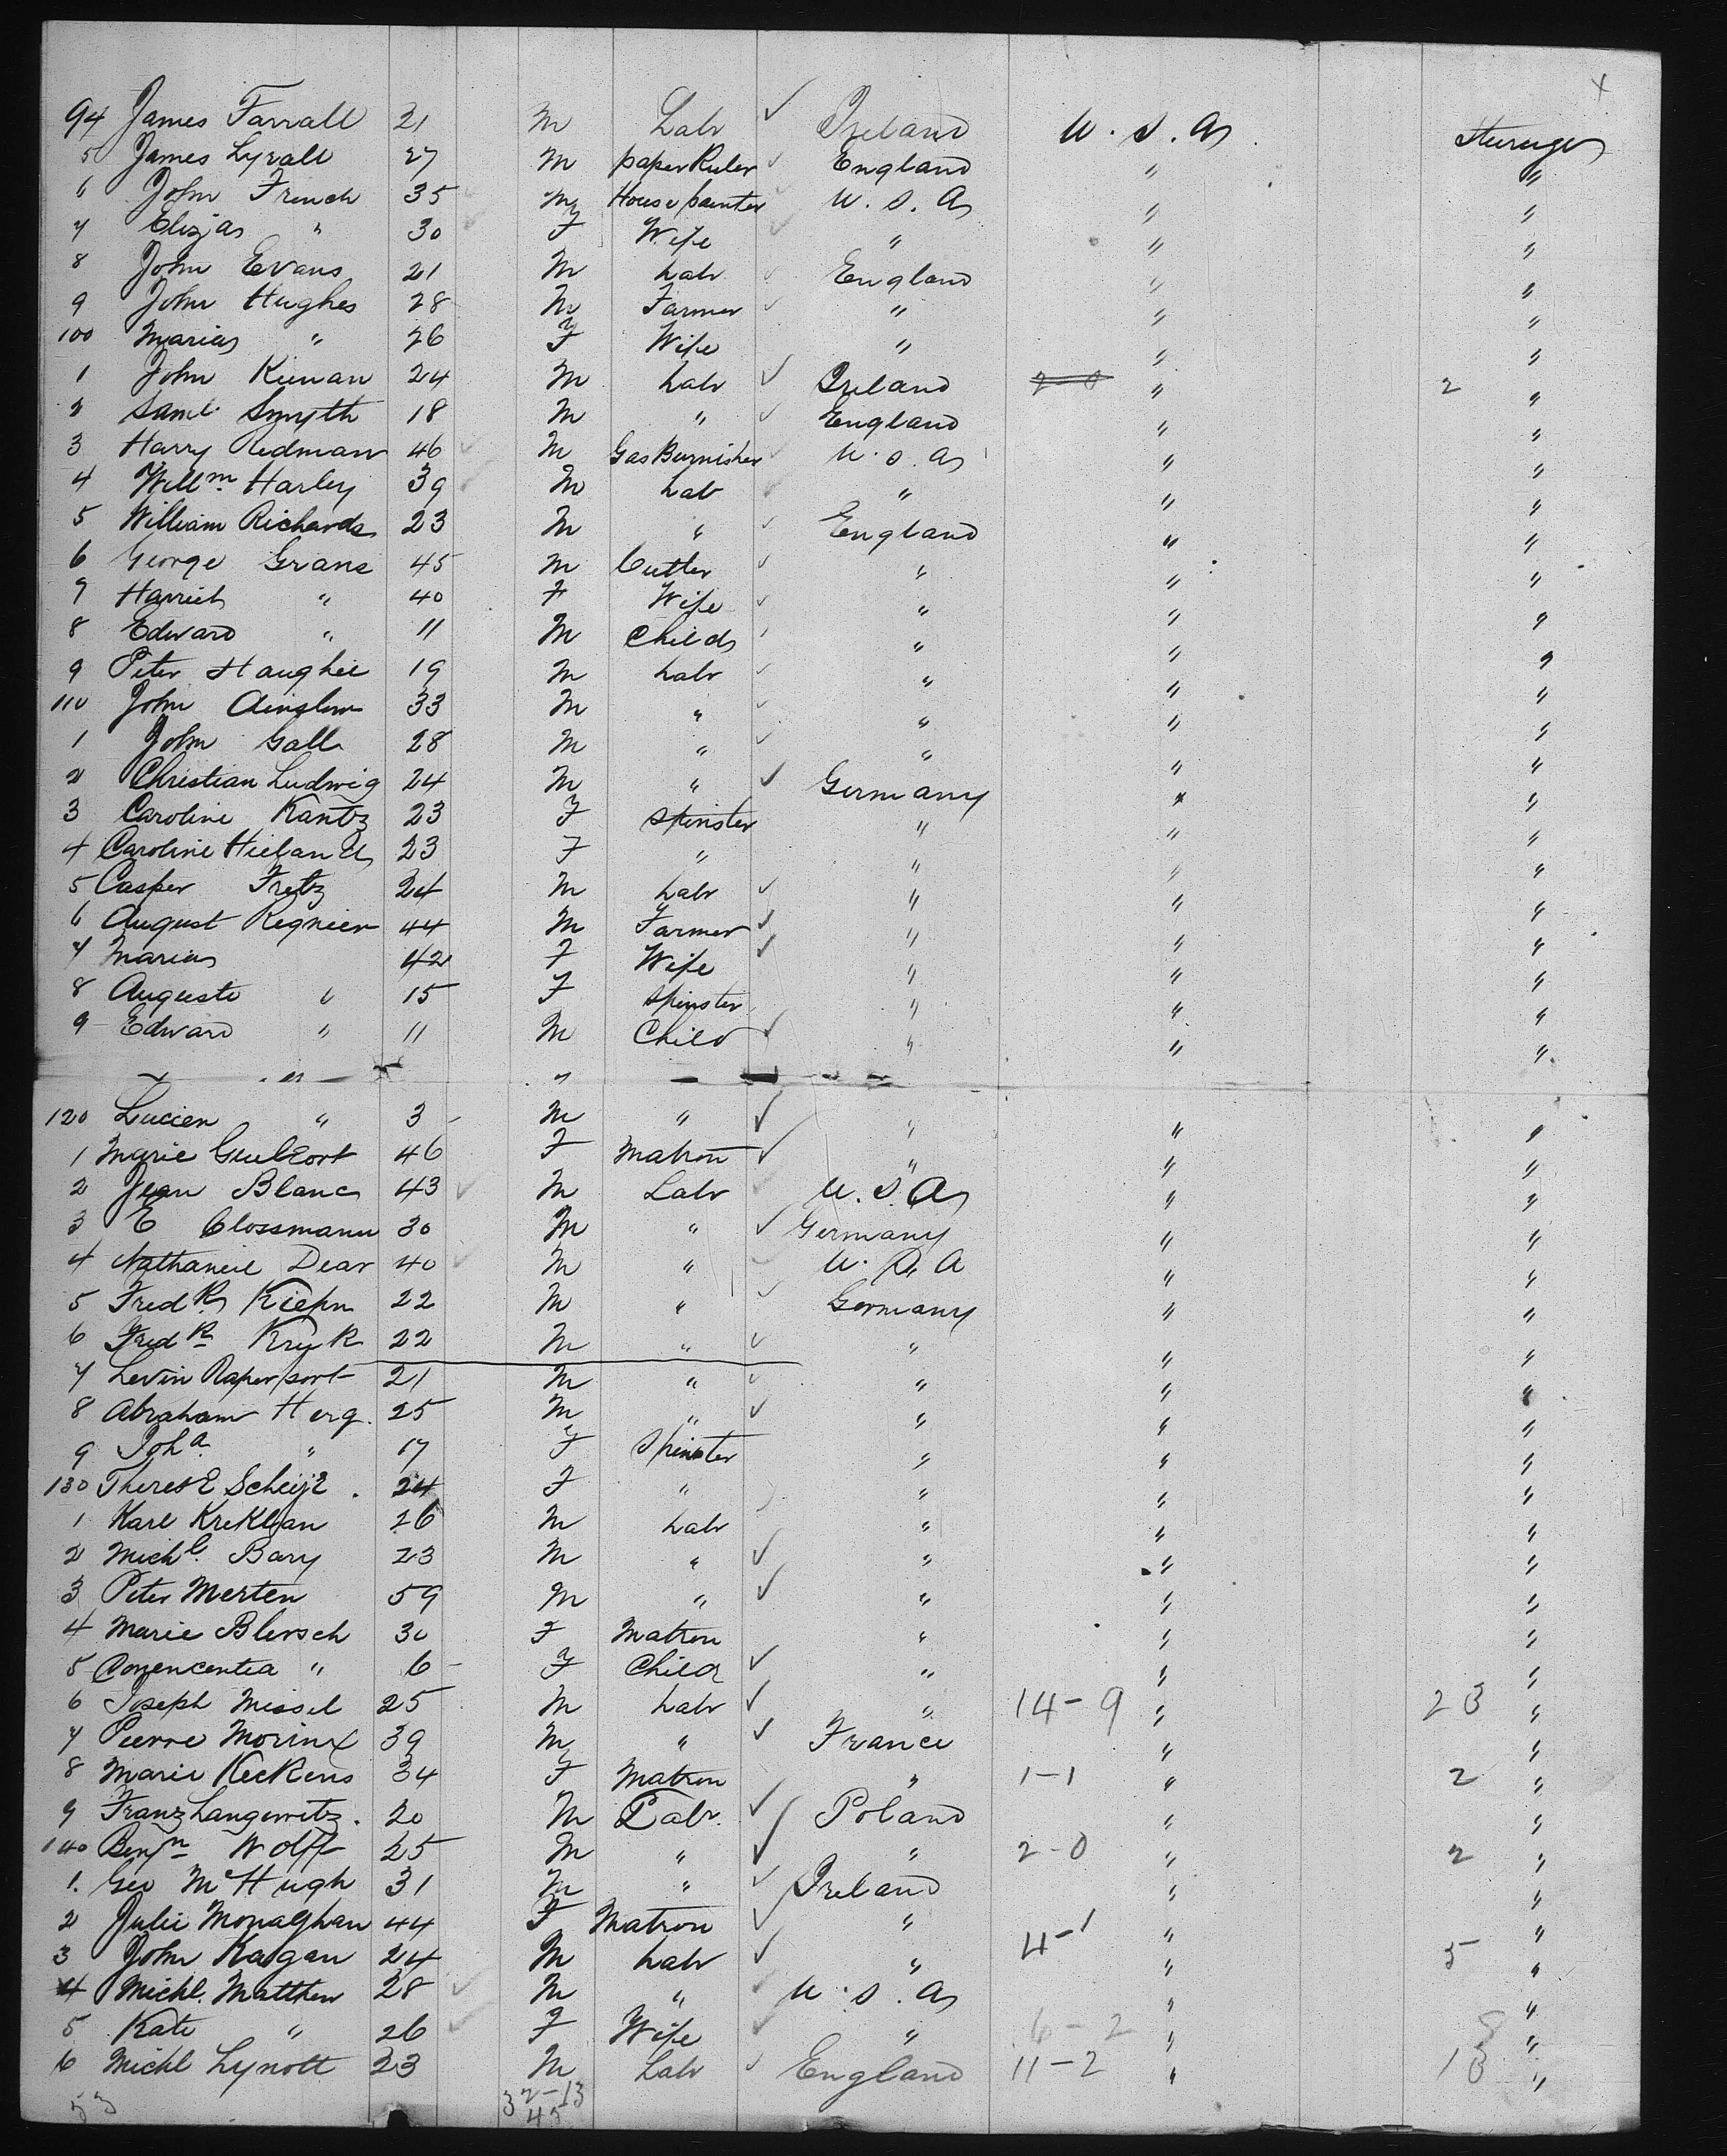 94 James Farrall 21 M Labr ✓ Ireland U.S.A. Steerage
5 James Lyrall 27 M paper Ruler ✓ England " "
6 John French 35 M House painter ✓ U.S.A. " "
7 Eliza " 30 F Wife ✓ " " "
8 John Evans 21 M Labr ✓ England " "
9 John Hughes 28 M Farmer ✓ " " "
100 Maria " 26 F Wife " " "
1 John Keenan 24 M Labr ✓ Ireland 2-0 " 2 "
2 Saml. Smyth 18 M " ✓ England " "
3 Harry Redman 46 M Gas Burnisher U.S.A. " "
4 Willm. Harley 39 M Lab ✓ " " "
5 William Richards 23 M " ✓ England " "
6 George Grans 45 M Cutler ✓ " " "
7 Harriet " 40 F Wife ✓ " " "
8 Edward " 11 M Child " " "
9 Peter Haughie 19 M Labr ✓ " " "
110 John Ainslow 33 M " ✓ " " "
1 John Gall 28 M " ✓ " " "
2 Christian Ludwig 24 M " ✓ Germany " "
3 Caroline Kantz 23 F Spinster " " "
4 Caroline Hieland 23 F " " " "
5 Casper Fretz 24 M Labr ✓ " " "
6 August Regnier 44 M Farmer ✓ " " "
7 Maria 42 F Wife ✓ " " "
8 Auguste " 15 F Spinster " " "
9 Edward " 11 M Child ✓ " " "
120 Lucien " 3 M " ✓ " " "
1 Marie 46 F Matron ✓ " " "
2 Jean Blanc 43 ✓ M Labr ✓ U.S.A. " "
3 E Clossmann 30 M " ✓ Germany " "
4 Nathaneil Dear 40 ✓ M " U.S.A " "
5 Fredk Kiehn 22 M " ✓ Germany " "
6 Fredk Kryk 22 M " ✓ " " "
7 Levin Raperport 21 M " ✓ " " "
8 Abraham Herg. 25 M " ✓ " " "
9 Joha. " 17 F Spinster " " "
130 Therese 24 F " " " "
1 Karl Kreklan 26 M Labr " " "
2 Michl. Bary 23 M " ✓ " " "
3 Peter Merten 59 M " ✓ " " "
4 Marie Blersch 30 F Matron " " "
5 " 6 F Child ✓ " " "
6 Joseph Missel 25 M Labr ✓ " 14-9 " 23 "
7 Pierre Morinx 39 M " ✓ France " "
8 Marie Keckens 34 F Matron " 1-1 " 2 "
9 Franz Langewitz. 20 M Labr. ✓ Poland " "
140 Benjn Wolff 25 M " ✓ " 2-0 " 2 "
1. Geo McHugh 31 M " ✓ Ireland " "
2 Julie Monaghan 44 F Matron ✓ " " "
3 John Kagan 24 M Labr ✓ " 4-1 " 5 "
4 Michl. Matthew 28 ✓ M " ✓ U.S.A. " "
5 Kate " 26 ✓ F Wife ✓ " 6-2 " 8 "
6 Michl Lynott 23 M Labr ✓ England 11-2 " 13 "
53 32-13
45